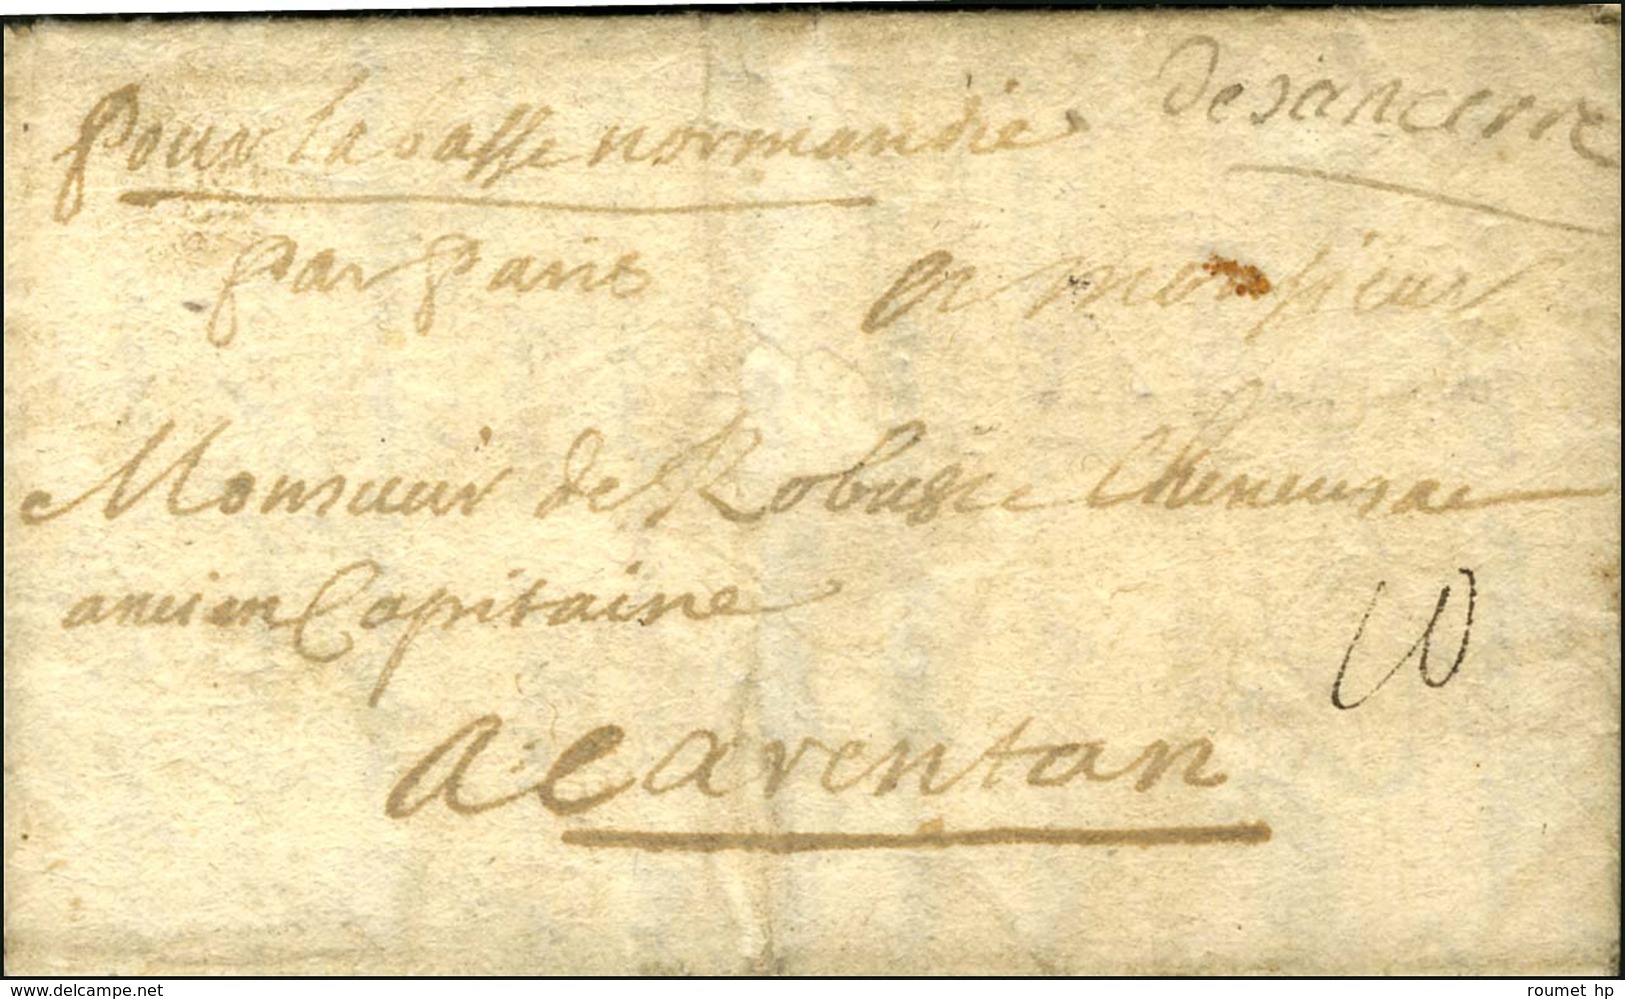 Pour la basse normandie
De sancerre
par paris
A monsieur
Monsieur de
ancien Capitaine
10
A Carentan
www.delcampe.net
roumet hp